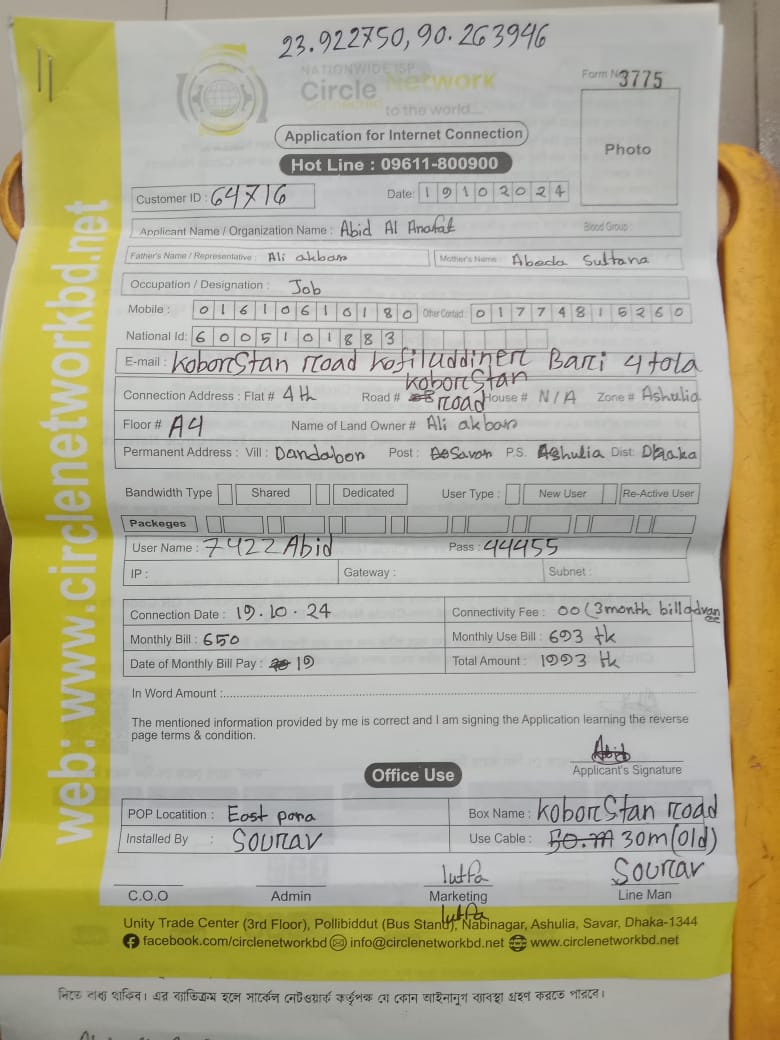 23.922750, 90.263946
NATIONWIDE ISP
Circle Network
Connected to the world...
Form No 3775
Application for Internet Connection
Photo
Hot Line : 09611-800900
Customer ID : 64716
Date: 19102024
Applicant Name / Organization Name : Abid Al Anafat
Blood Group :
Father's Name / Representative : Ali akbar
Mother's Name : Abeda Sultana
Occupation / Designation : Job
Mobile : 01610610180 Other Contact 01774815260
National Id: 6005101883
E-mail : koborStan road kofiluddiner Bari 4 tola
Connection Address : Flat # 4th Road # koborStan road House # N/A Zone # Ashulia
Floor # A4 Name of Land Owner # Ali akbar
Permanent Address : Vill : Dandabor Post : Savar P.S. Ashulia Dist: Dhaka
Bandwidth Type Shared Dedicated User Type : New User Re-Active User
Packeges
User Name : 7422Abid Pass : 44455
IP : Gateway : Subnet :
Connection Date : 19.10.24 Connectivity Fee : 00 (3month bill advance
Monthly Bill : 650 Monthly Use Bill : 693 tk
Date of Monthly Bill Pay : 19 Total Amount : 1993 tk
In Word Amount :
The mentioned information provided by me is correct and I am signing the Application learning the reverse
page terms & condition.
Abid
Applicant's Signature
Office Use
POP Locatition : East para Box Name : koborStan road
Installed By : Sourav Use Cable : 50.m 30m(old)
lutfa Sourav
C.O.O Admin Marketing Line Man
lutfa
Unity Trade Center (3rd Floor), Pollibiddut (Bus Stand), Nabinagar, Ashulia, Savar, Dhaka-1344
facebook.com/circlenetworkbd info@circlenetworkbd.net www.circlenetworkbd.net
web: www.circlenetworkbd.net
দিতে বাধ্য থাকিব। এর ব্যতিক্রম হলে সার্কেল নেটওয়ার্ক কর্তৃপক্ষ যে কোন আইনানুগ ব্যবস্থা গ্রহণ করতে পারবে।